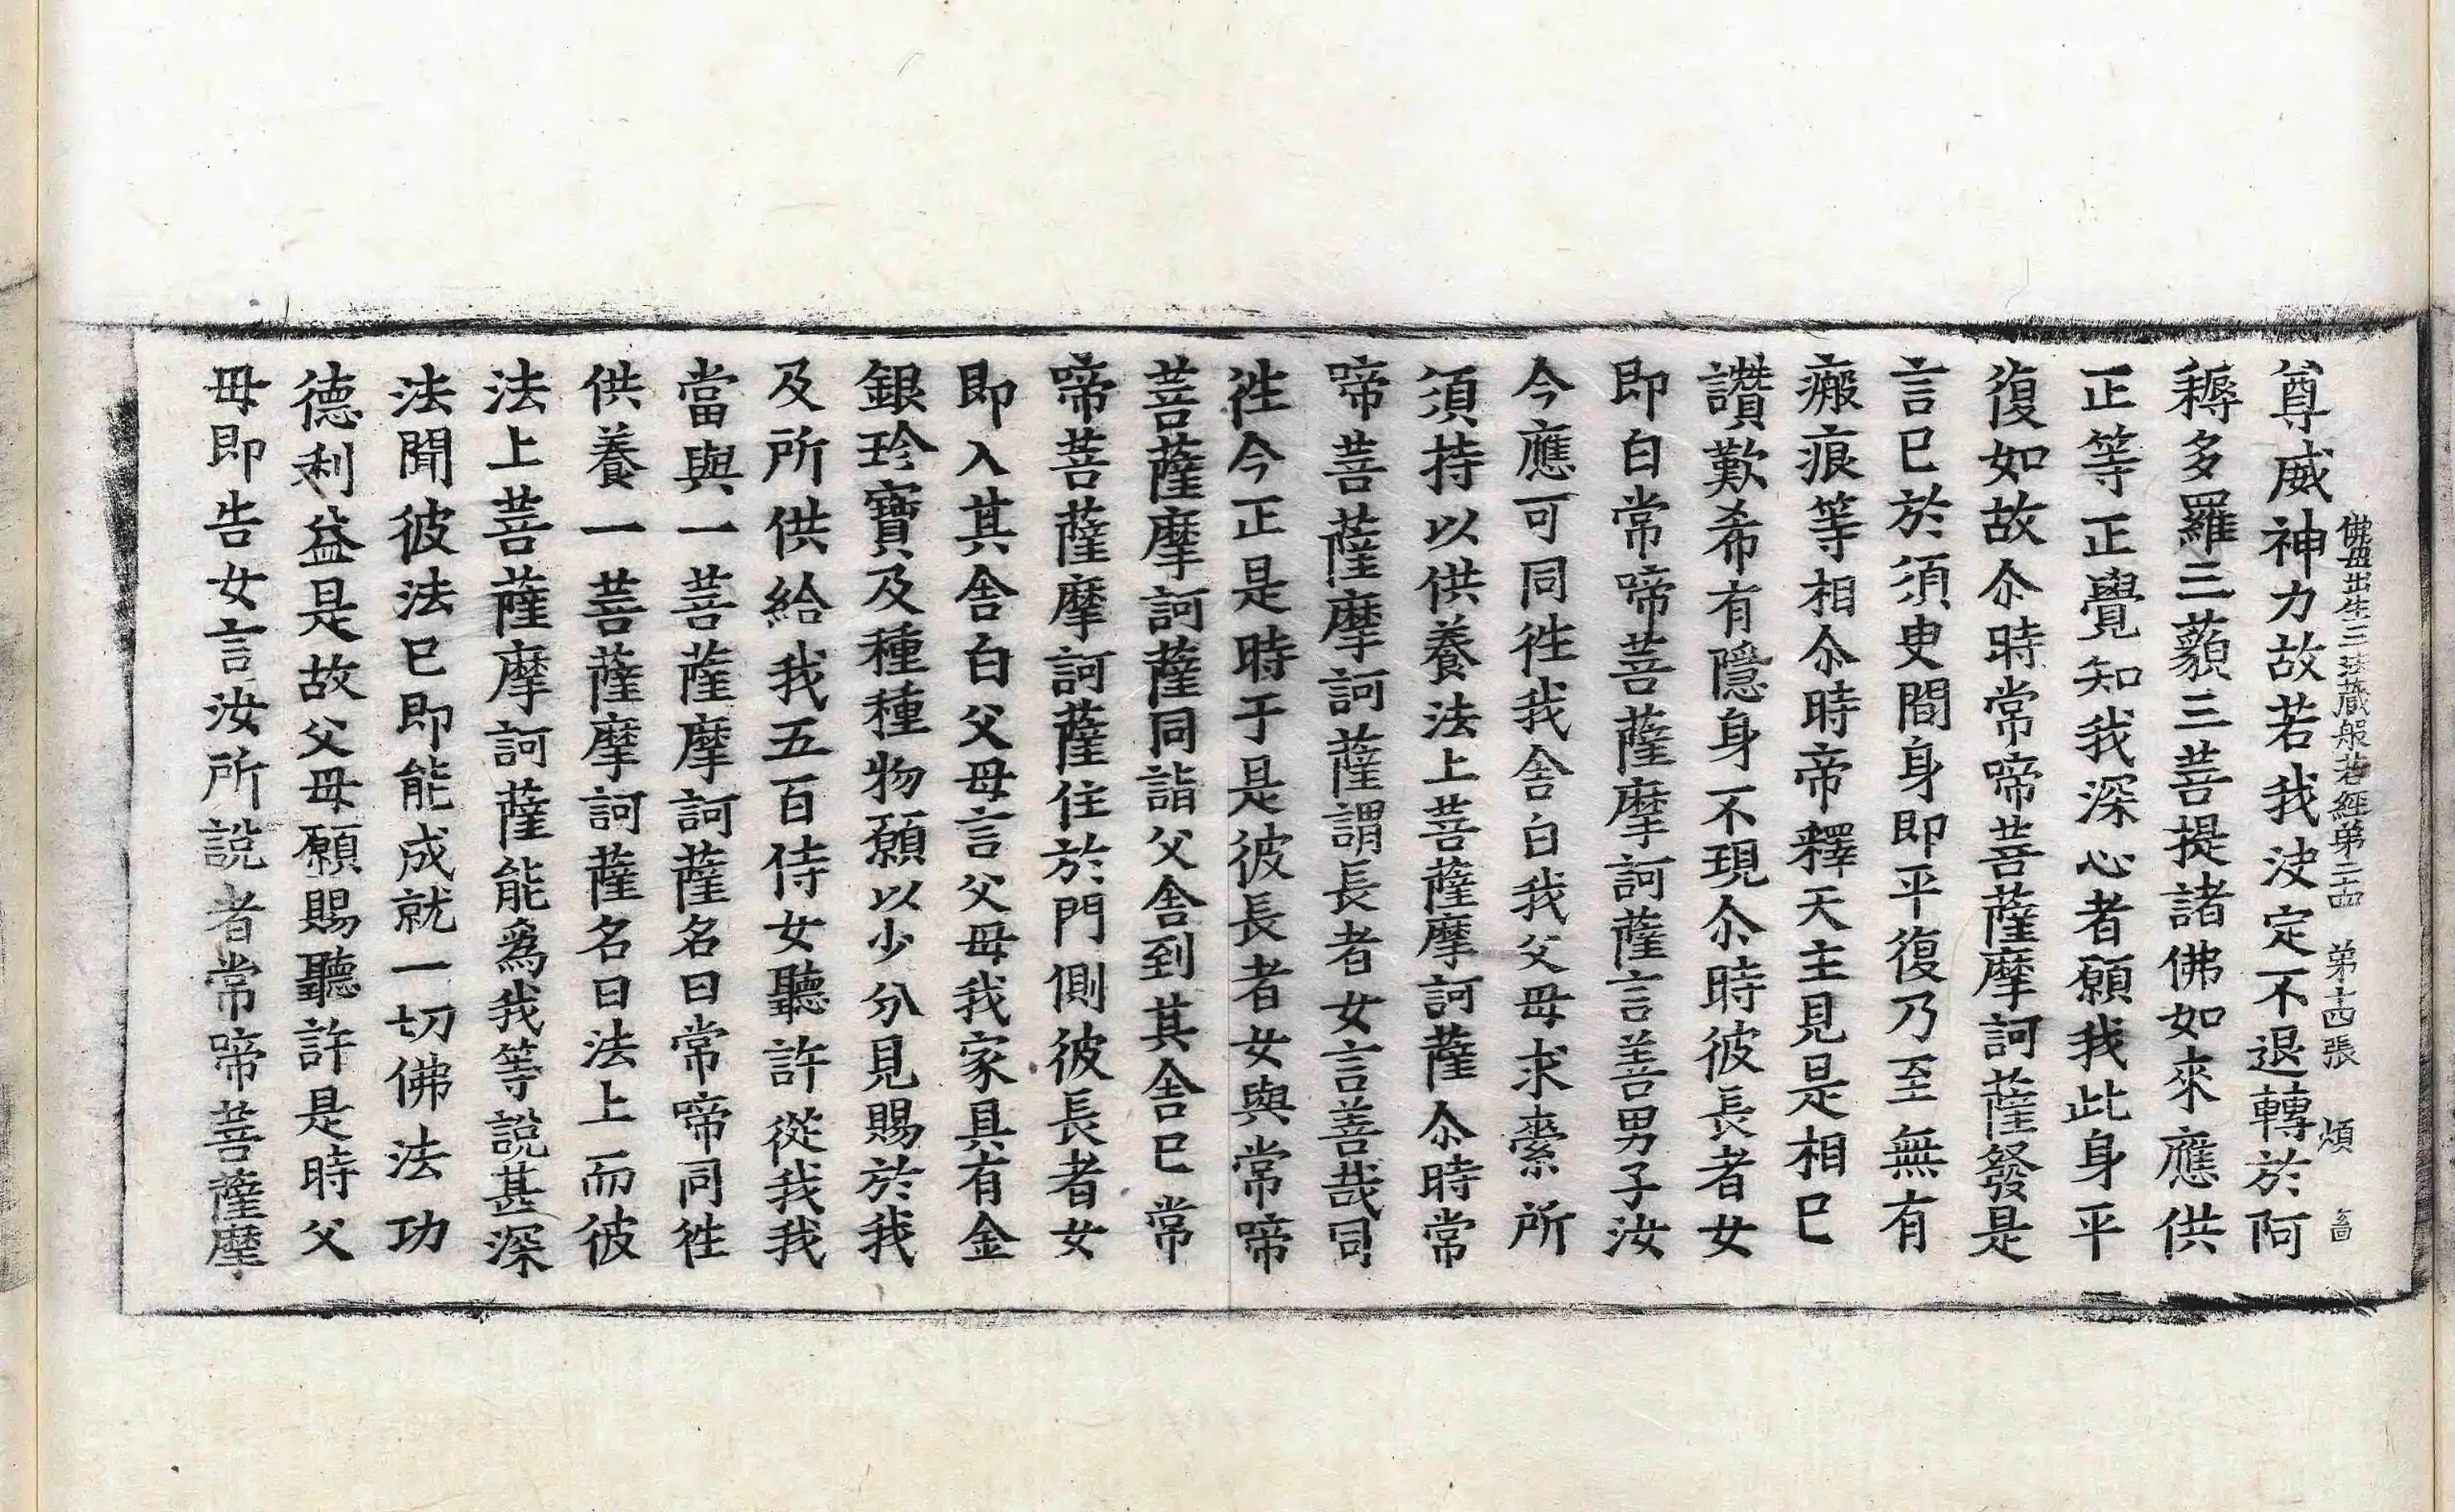 佛母出生三法藏般若經第二十四 第十四張 煩
尊威神力故若我決定不退轉於阿
耨多羅三藐三菩提諸佛如來應供
正等正覺知我深心者願我此身平
復如故尒時常啼菩薩摩訶薩發是
言已於須臾間身即平復乃至無有
瘢痕等相尒時帝釋天主見是相已
讚歎希有隱身不現尒時彼長者女
即白常啼菩薩摩訶薩言善男子汝
今應可同徃我舍白我父母求索所
須持以供養法上菩薩摩訶薩尒時常
啼菩薩摩訶薩謂長者女言善哉同
徃今正是時于是彼長者女與常啼
菩薩摩訶薩同詣父舍到其舍已常
啼菩薩摩訶薩住於門側彼長者女
即入其舍白父母言父母我家具有金
銀珍寶及種種物願以少分見賜於我
及所供給我五百侍女聽許從我我
當與一菩薩摩訶薩名曰常啼同徃
供養一菩薩摩訶薩名曰法上而彼
法上菩薩摩訶薩能爲我等說甚深
法聞彼法已即能成就一切佛法功
德利益是故父母願賜聽許是時父
母即告女言汝所說者常啼菩薩摩